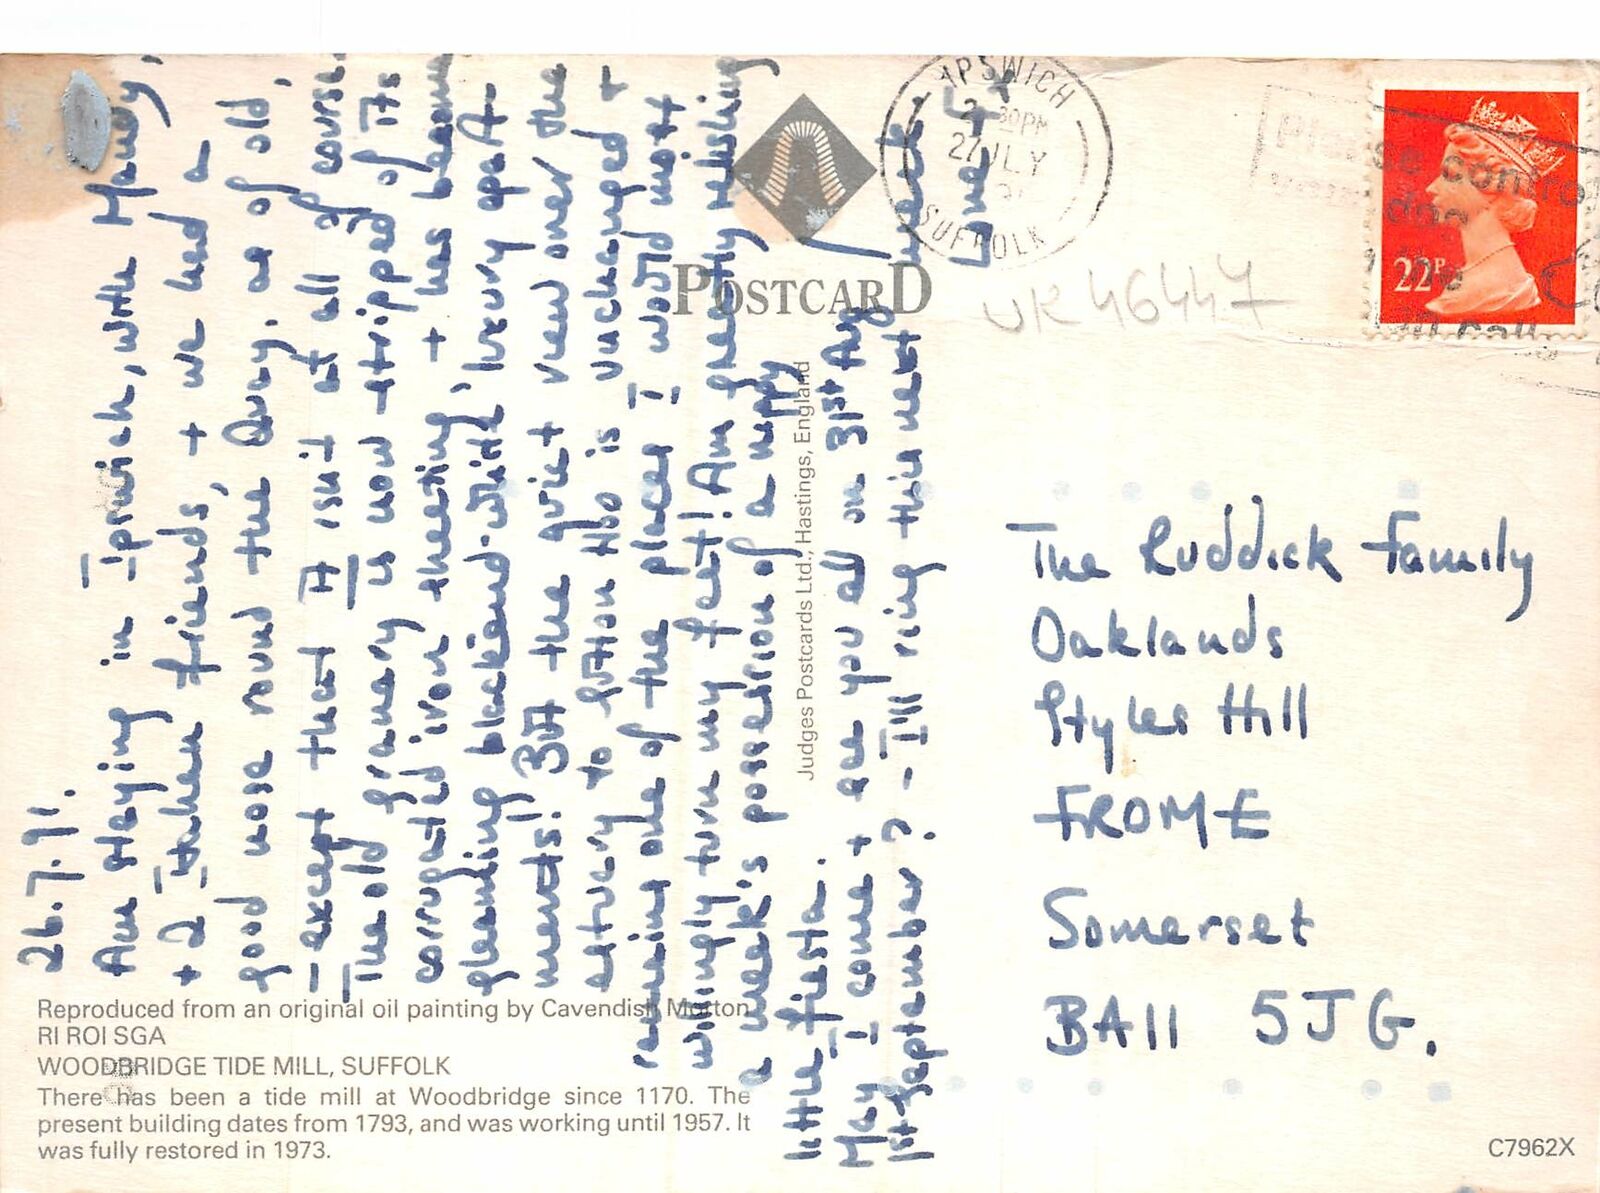 26.7.91.
Am staying in Ipswich, with Mandy,
+ 2 Italian friends, + we had a
good nose round the Quay. as of old,
- except that it isn't at all of course.
The old granary is now stripped of its
corrugated iron sheeting, + has become
gleaming blackened-with 'luxury apart-
ments'! But the quiet view over the
estuary to Sutton Hoo is unchanged +
remains one of the places I would most
willingly turn my feet! Am greatly relishing
a week's possession of a nippy
little fiesta.
May I come + see you all on 31st Aug /
1st September? - I'll ring this next week
Love
POSTCARD
Judges Postcards Ltd., Hastings, England
IPSWICH
30PM
27 JLY
SUFFOLK
Please control
dog
22P
UK 46447
The Ruddick Family
Oaklands
Styles Hill
FROME
Somerset
BA11 5JG.
Reproduced from an original oil painting by Cavendish Morton
RI ROI SGA
WOODBRIDGE TIDE MILL, SUFFOLK
There has been a tide mill at Woodbridge since 1170. The
present building dates from 1793, and was working until 1957. It
was fully restored in 1973.
C7962X